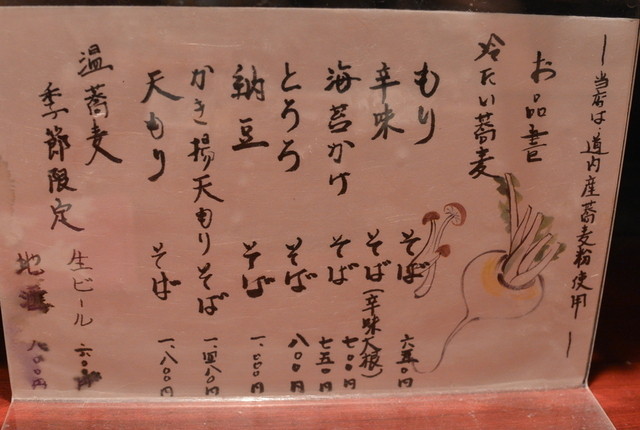 ―当店は、道内産蕎麦粉使用―
お品書
冷たい蕎麦
もりそば 六五〇円
辛味そば(辛味大根) 七〇〇円
海苔かけそば 七五〇円
とろろそば 八〇〇円
納豆そば 一、〇〇〇円
かき揚天もりそば 一、四八〇円
天もりそば 一、八〇〇円
温蕎麦
季節限定
生ビール 六〇〇円
地酒 八〇〇円